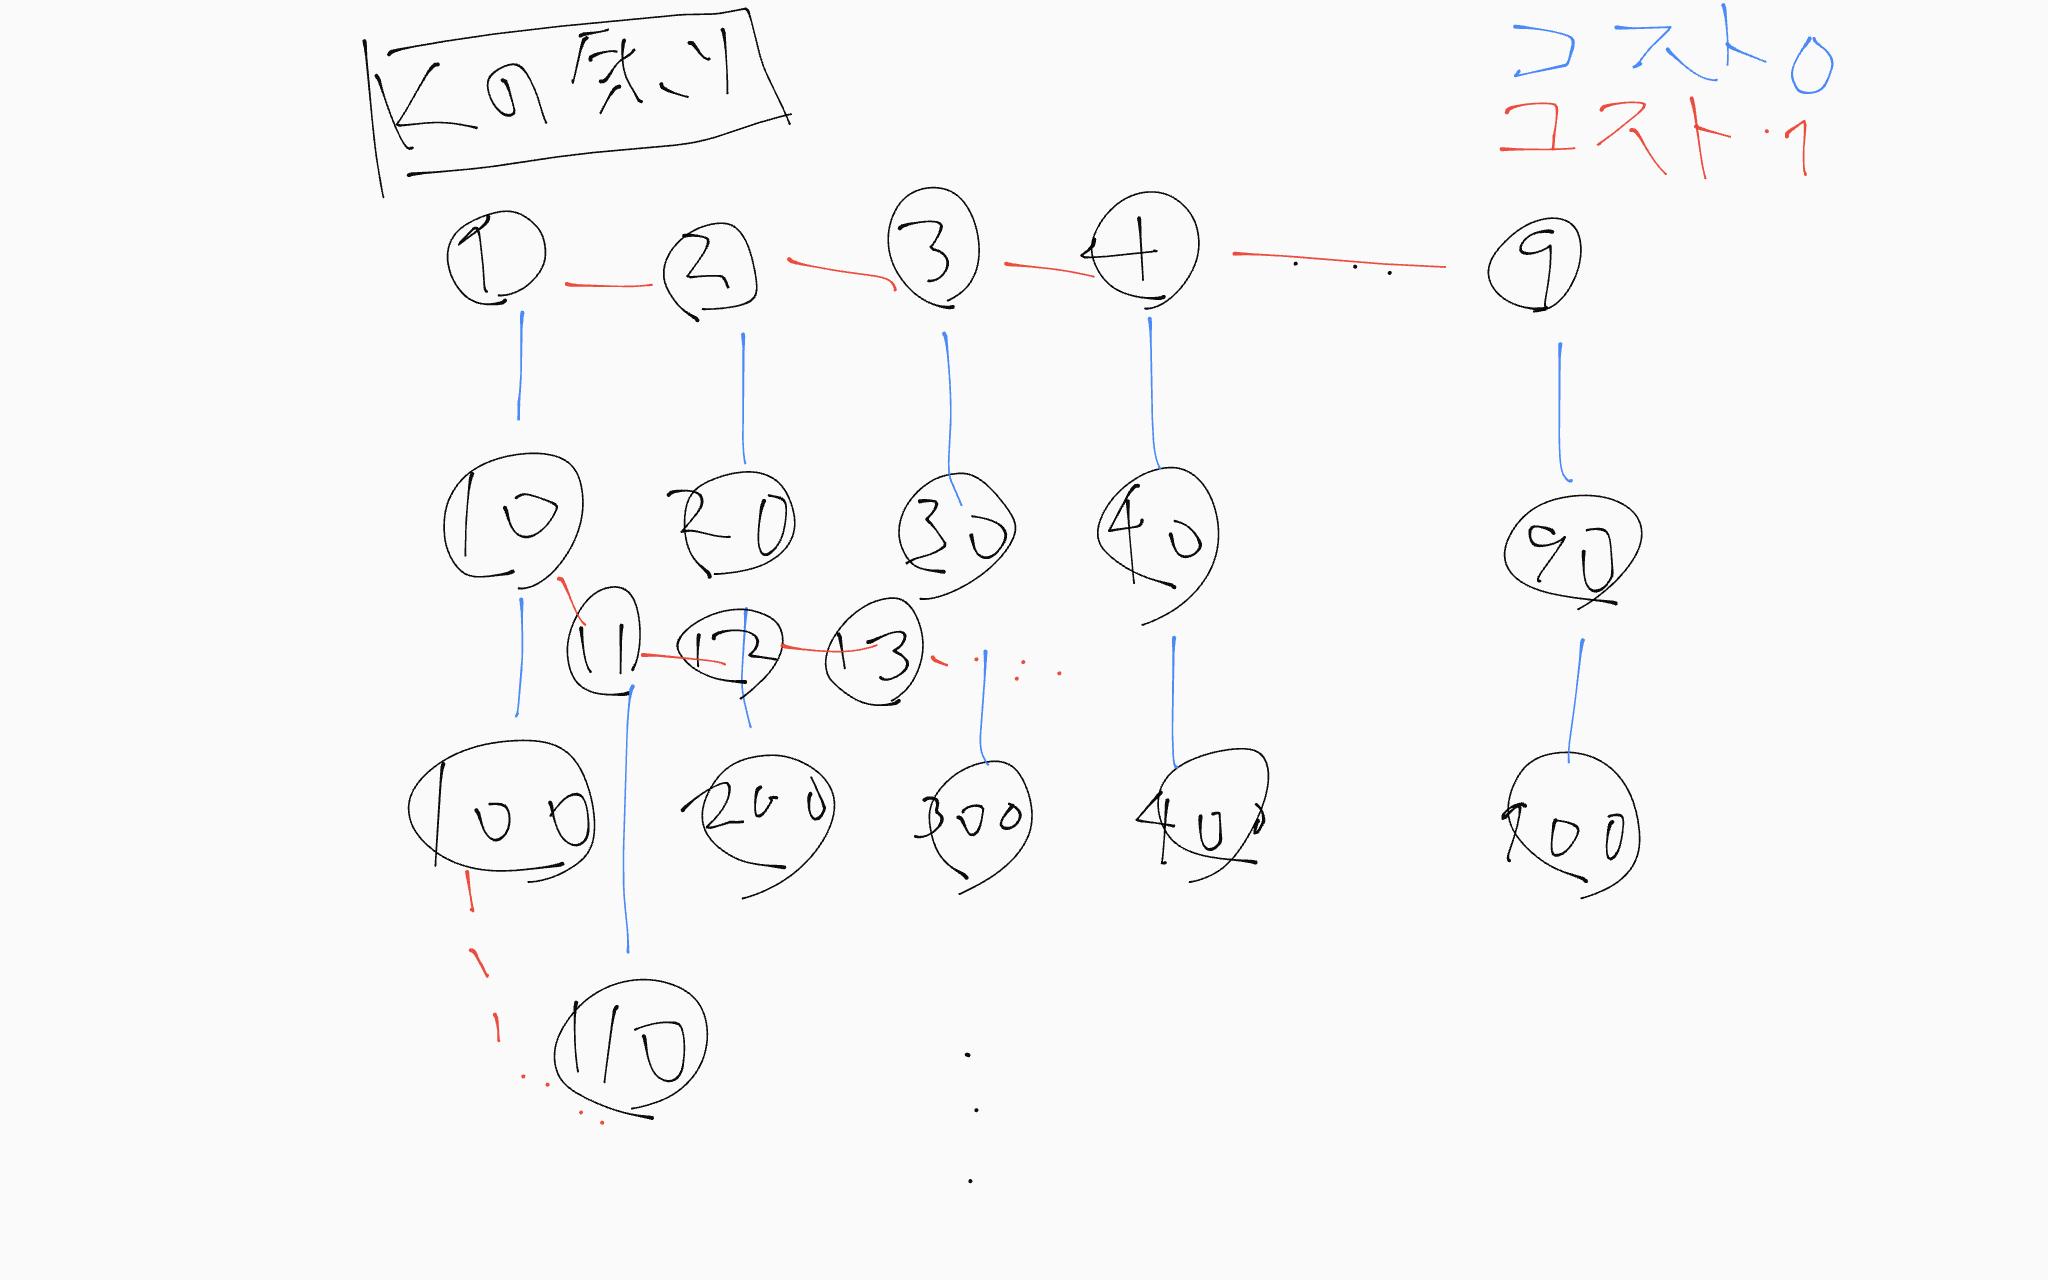 Kの感じ
コスト0
コスト・1
1 2 3 4 ・・・ 9
10 20 30 40 90
11 12 13
100 200 300 400 900
110